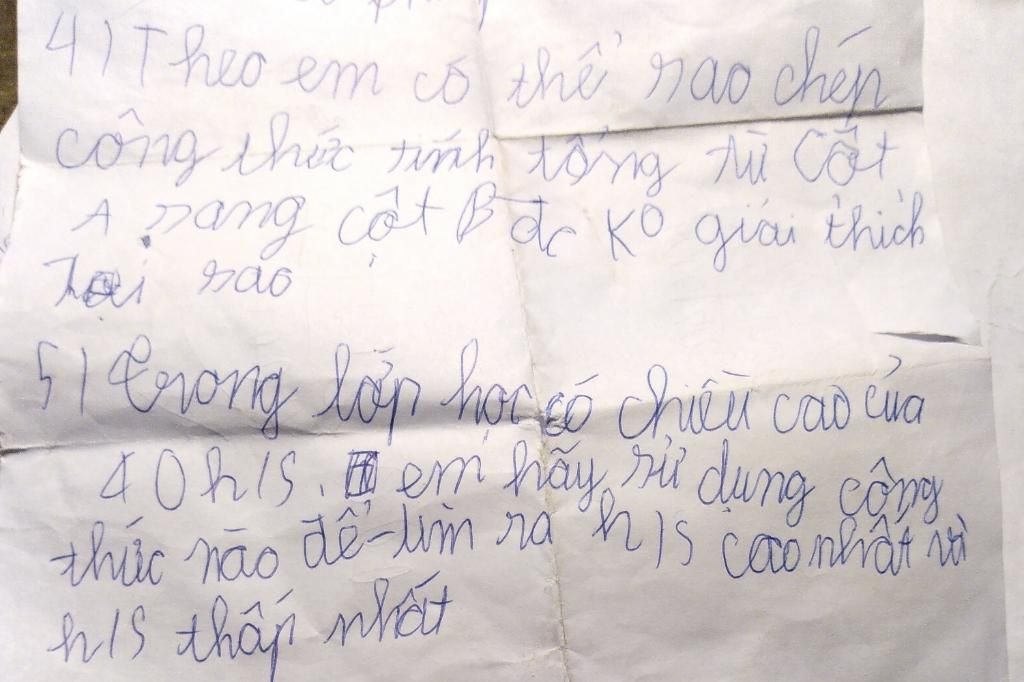 4) Theo em có thể sao chép
công thức tính tổng từ Cột
A sang cột B đc Ko giải thích
Tại sao
5) trong lớp học có chiều cao của
40 h/s. em hãy sử dụng công
thức nào để tìm ra h/s cao nhất và
h/s thấp nhất